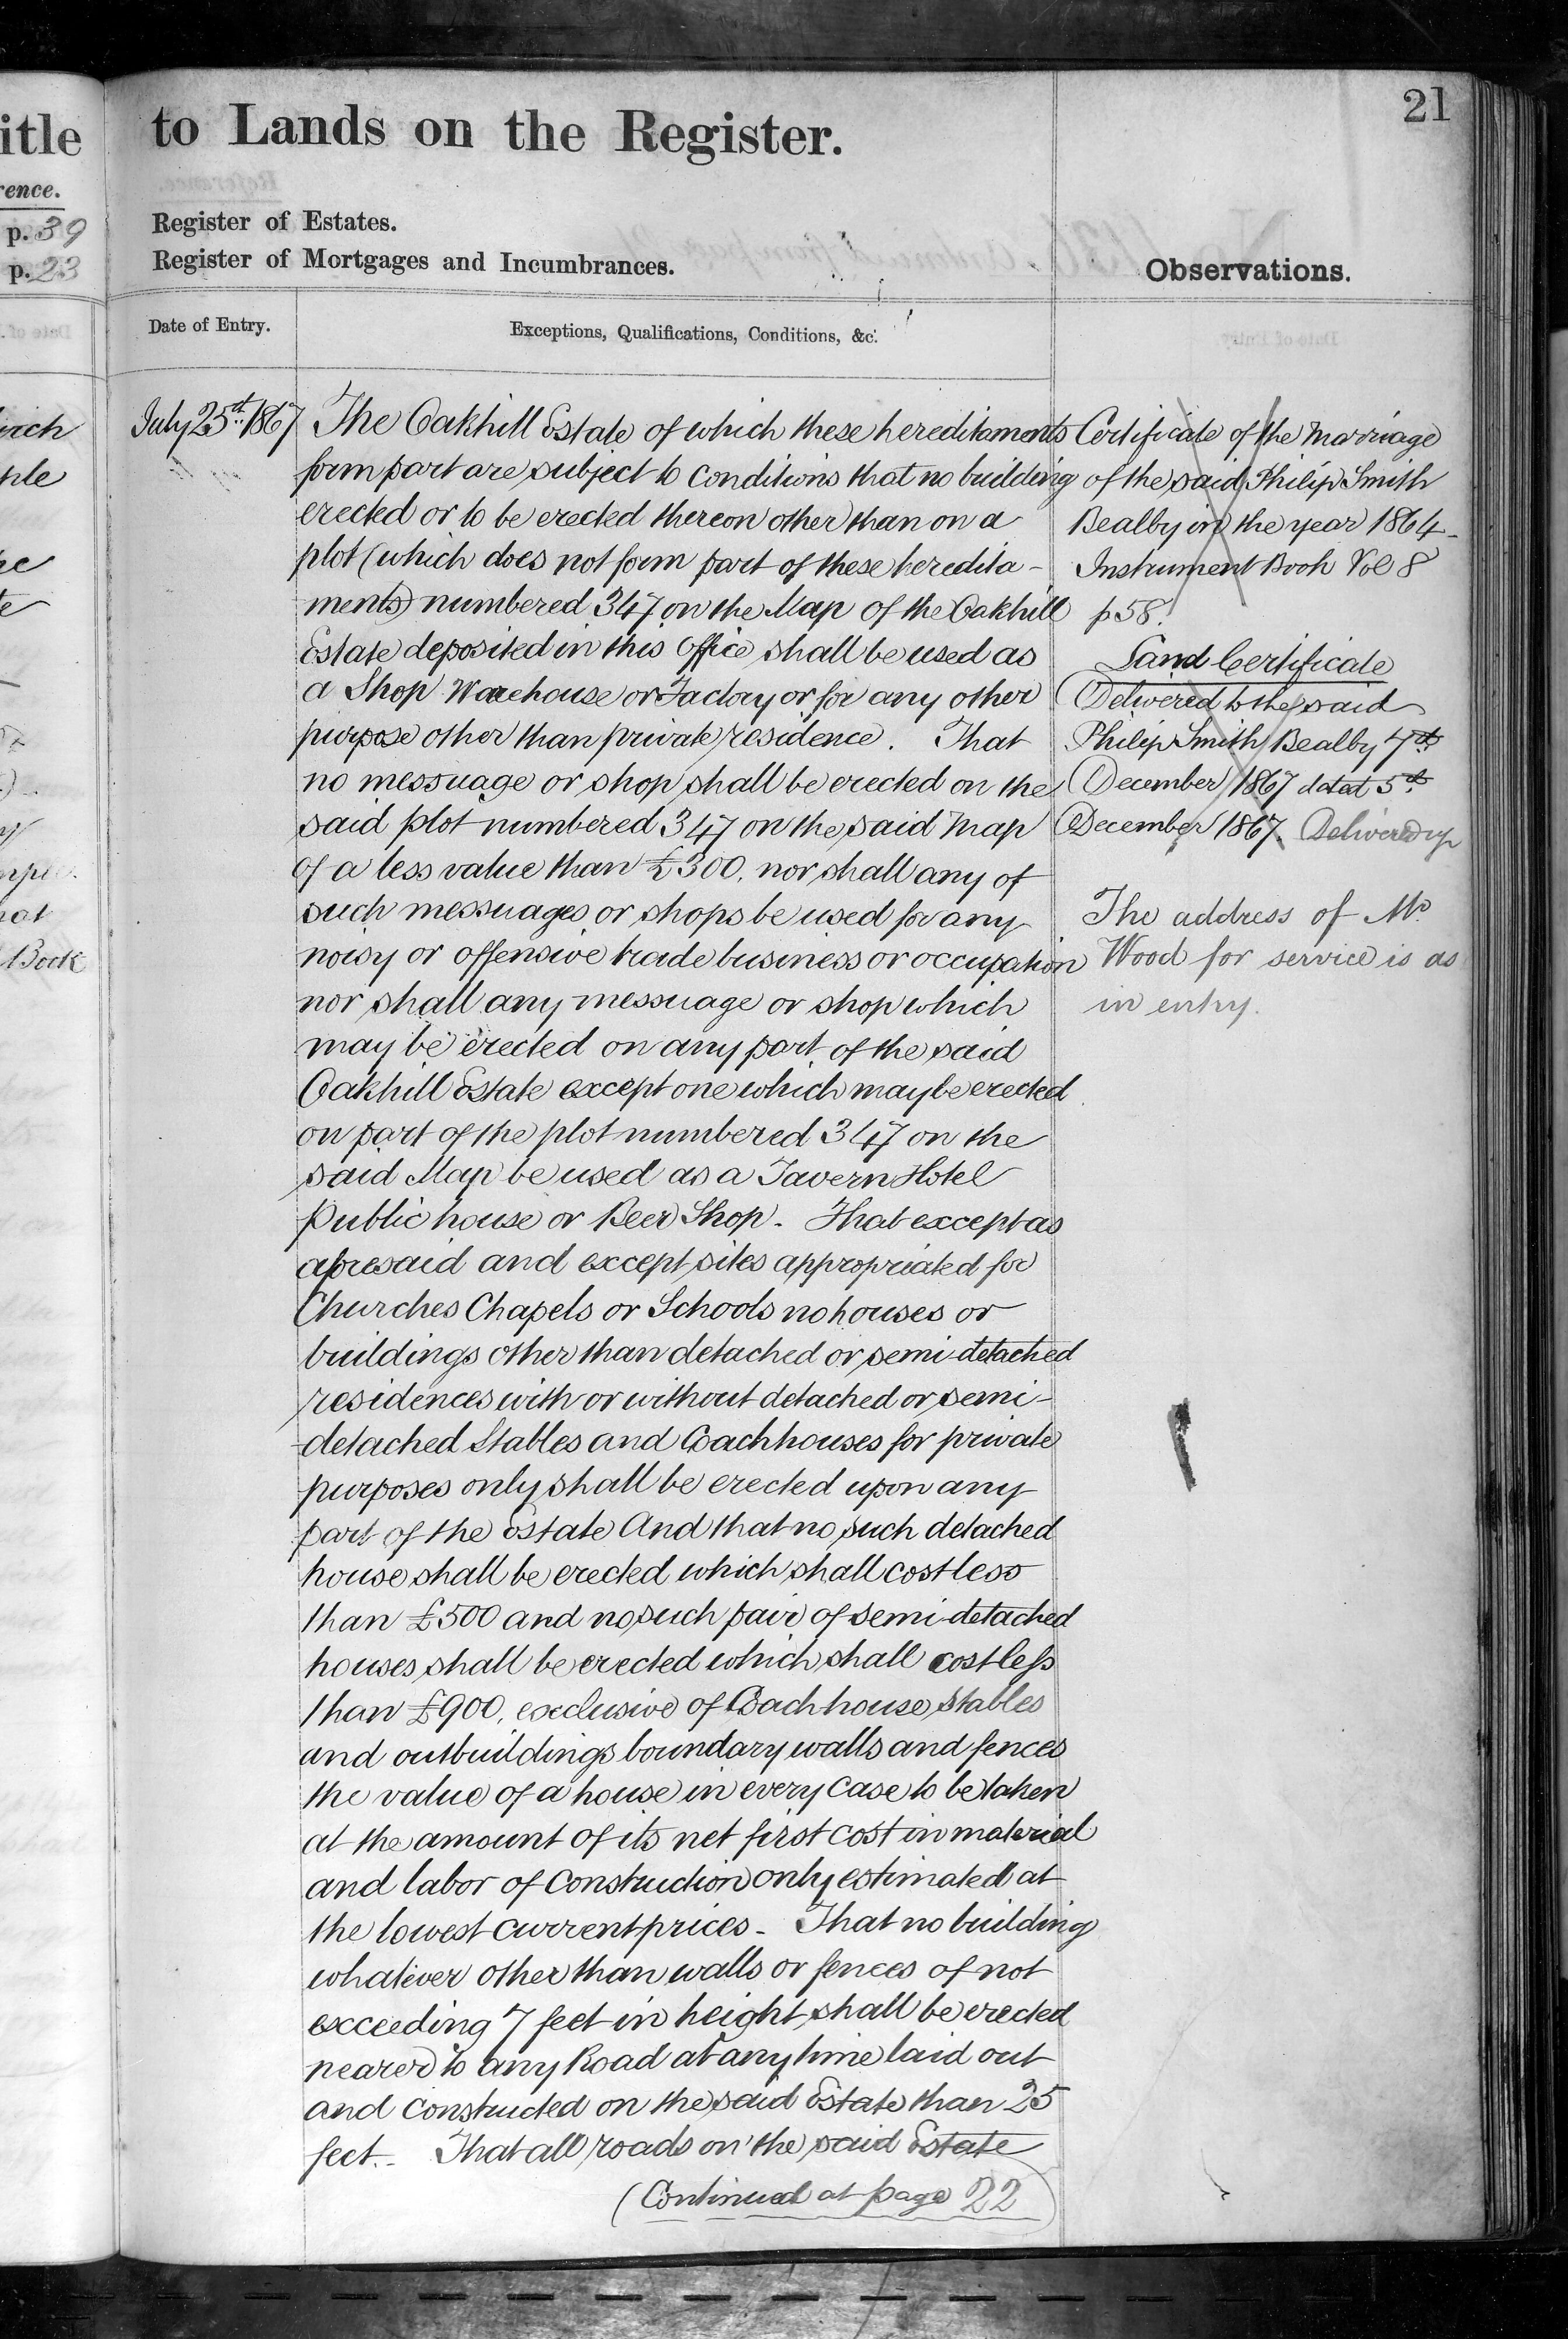 itle
rence.
p. 39
p. 23
Book
to Lands on the Register.
21
Register of Estates.
Register of Mortgages and Incumbrances.
Observations.
Date of Entry.
Exceptions, Qualifications, Conditions, &c.
July 25th 1867
The Oakhill Estate of which these hereditaments
form part are subject to conditions that no building
erected or to be erected thereon other than on a
plot (which does not form part of these heredita-
ments) numbered 347 on the Map of the Oakhill
Estate deposited in this Office shall be used as
a Shop Warehouse or Factory or for any other
purpose other than private residence. That
no messuage or shop shall be erected on the
said plot numbered 347 on the said Map
of a less value than £300, nor shall any of
such messuages or shops be used for any
noisy or offensive trade business or occupation
nor shall any messuage or shop which
may be erected on any part of the said
Oakhill Estate except one which may be erected
on part of the plot numbered 347 on the
said Map be used as a Tavern Hotel
Public house or Beer Shop. That except as
aforesaid and except sites appropriated for
Churches Chapels or Schools no houses or
buildings other than detached or semi-detached
residences with or without detached or semi-
detached Stables and Coachhouses for private
purposes only shall be erected upon any
part of the Estate And that no such detached
house shall be erected which shall cost less
than £500 and no such pair of semi-detached
houses shall be erected which shall cost less
than £900, exclusive of Coachhouse stables
and outbuildings boundary walls and fences
the value of a house in every case to be taken
at the amount of its net first cost in material
and labor of construction only estimated at
the lowest current prices - That no building
whatever other than walls or fences of not
exceeding 7 feet in height shall be erected
nearer to any Road at any time laid out
and constructed on the said Estate than 25
feet. - That all roads on the said Estate
(Continued at page 22)
Certificate of the Marriage
of the said Philip Smith
Bealby in the year 1864 -
Instrument Book Vol 8
p 58.
Land Certificate
Delivered to the said
Philip Smith Bealby 7th
December 1867 dated 5th
December 1867. Delivered up
The address of Mr
Wood for service is as
in entry.